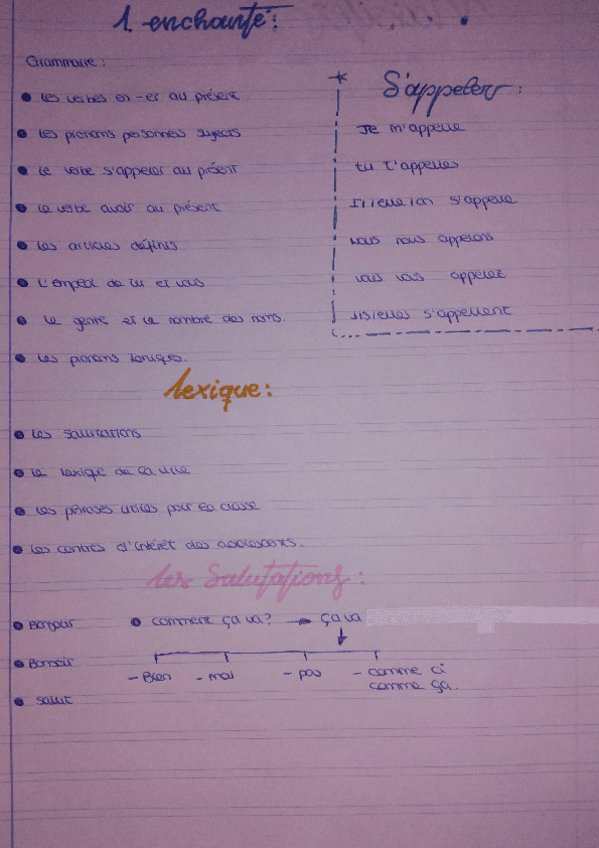 1. enchanté:
Grammaire:
• les verbes en -er au présent
• les pronoms personnels sujets
• le verbe s'appeler au présent
• le verbe avoir au présent
• les articles définis
• l'emploi de tu et vous
• le genre et le nombre des noms.
• les pronoms toniques.
* S'appeler:
Je m'appelle
tu t'appelles
Il/elle/on s'appelle
nous nous appelons
vous vous appelez
ils/elles s'appellent
lexique:
• les salutations
• le lexique de la ville
• les phrases utiles pour la classe
• les centres d'intérêt des adolescents.
les Salutations:
• Bonjour
• Bonsoir
• salut
• comment ça va? → ça va
- Bien - mal - pas - comme ci
comme ça.